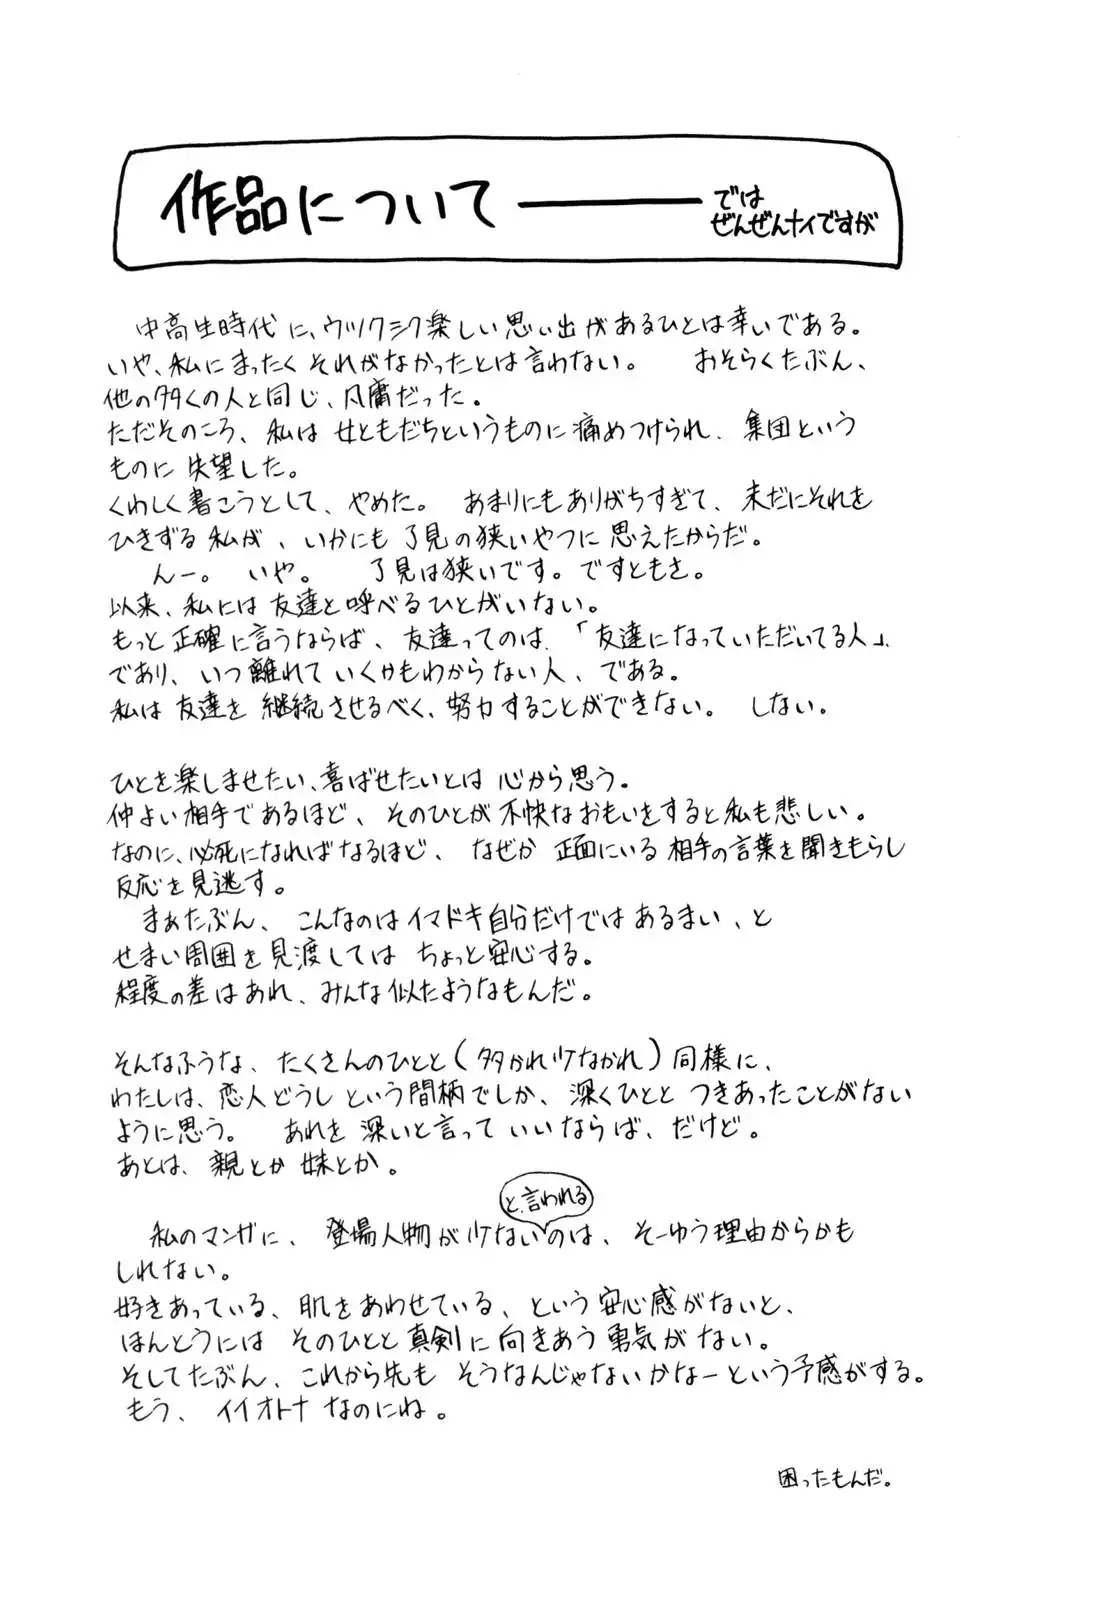 作品について――では
ぜんぜんナイですが
中高生時代に、ウツクシク楽しい思い出があるひとは幸いである。
いや、私にまったくそれがなかったとは言わない。 おそらくたぶん、
他の多くの人と同じ、凡庸だった。
ただそのころ、私は女ともだちというものに痛めつけられ、集団という
ものに失望した。
くわしく書こうとして、やめた。 あまりにもありがちすぎて、未だにそれを
ひきずる私が、いかにも了見の狭いやつに思えたからだ。
んー。 いや。 了見は狭いです。ですともさ。
以来、私には友達と呼べるひとがいない。
もっと正確に言うならば、友達ってのは、「友達になっていただいてる人」
であり、いつ離れていくかもわからない人、である。
私は友達を継続させるべく、努力することができない。 しない。
ひとを楽しませたい、喜ばせたいとは心から思う。
仲よい相手であるほど、そのひとが不快なおもいをすると私も悲しい。
なのに、必死になればなるほど、なぜか正面にいる相手の言葉を聞きもらし
反応を見逃す。
まぁたぶん、こんなのはイマドキ自分だけではあるまい、と
せまい周囲を見渡してはちょっと安心する。
程度の差はあれ、みんな似たようなもんだ。
そんなふうな、たくさんのひとと(多かれ少なかれ)同様に、
わたしは、恋人どうしという間柄でしか、深くひととつきあったことがない
ように思う。 あれを深いと言っていいならば、だけど。
あとは、親とか妹とか。
と、言われる
私のマンガに、登場人物が少ないのは、そーゆう理由からかも
しれない。
好きあっている、肌をあわせている、という安心感がないと、
ほんとうにはそのひとと真剣に向きあう勇気がない。
そしてたぶん、これから先もそうなんじゃないかなーという予感がする。
もう、イイオトナなのにね。
困ったもんだ。